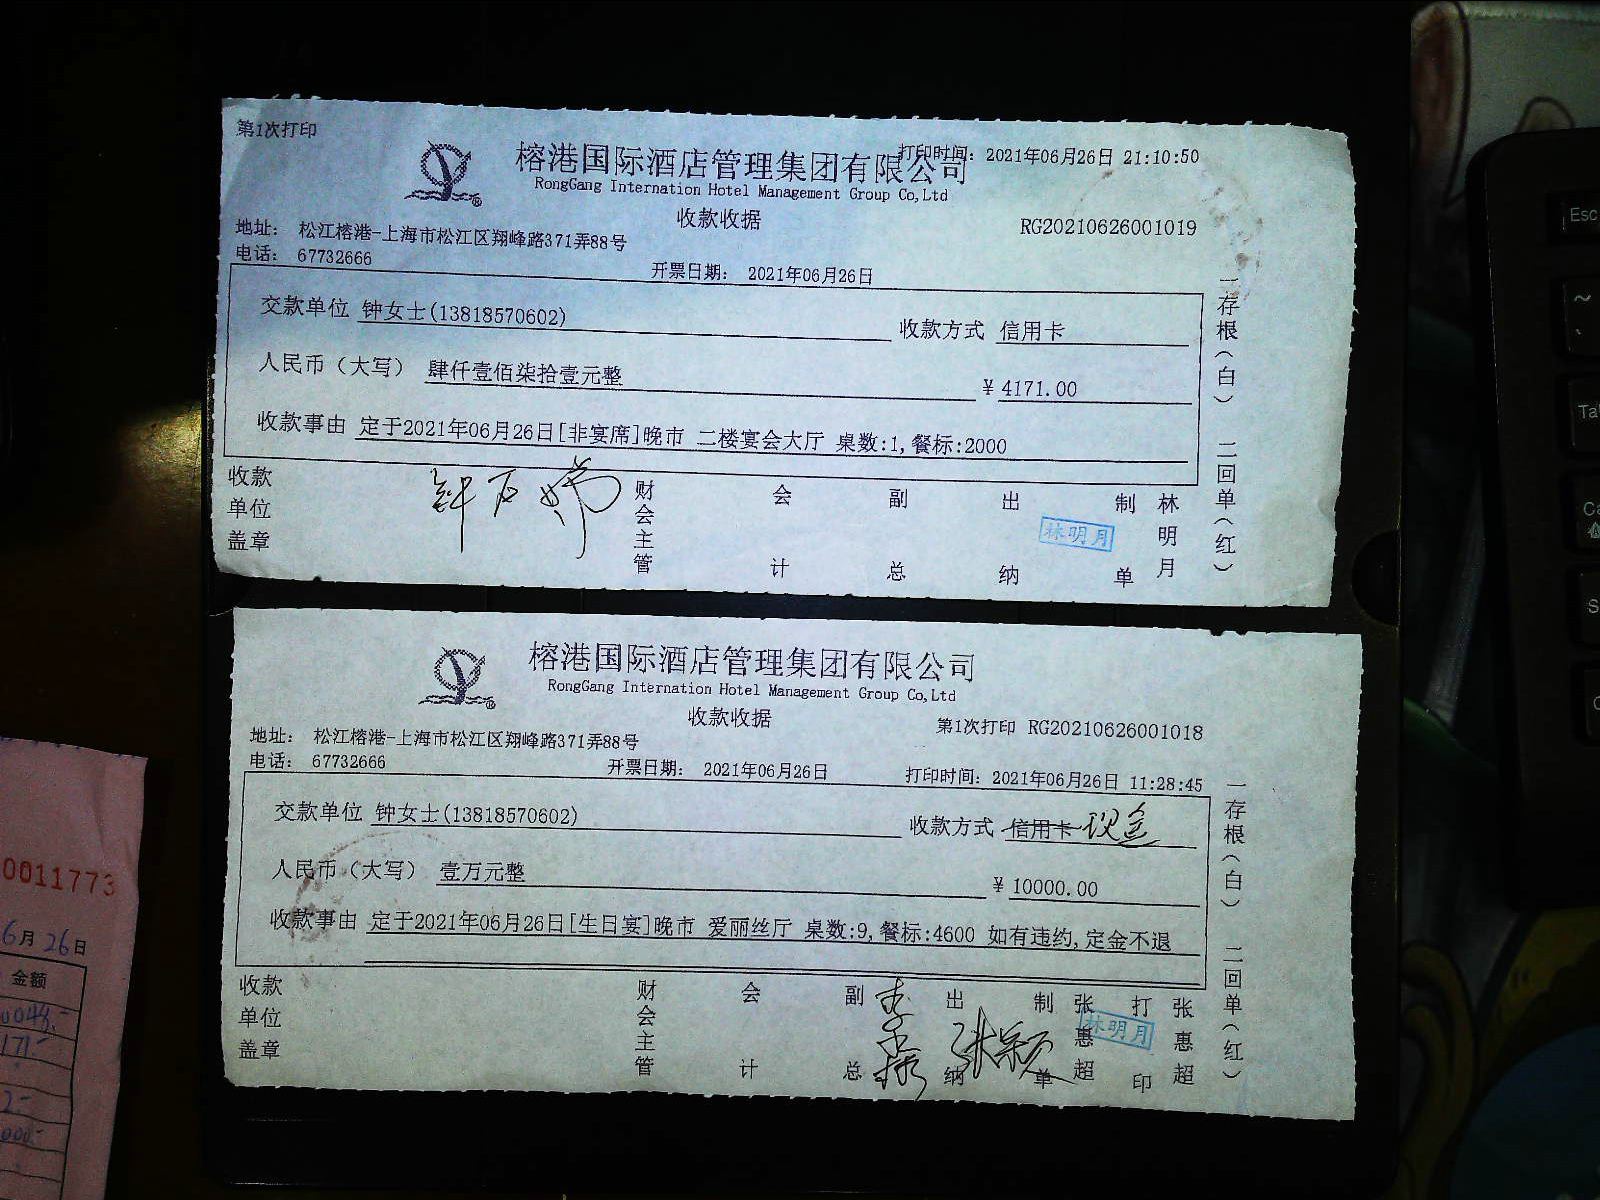 第1次打印
榕港国际酒店管理集团有限公司
打印时间: 2021年06月26日 21:10:50
RongGang Internation Hotel Management Group Co,Ltd
收款收据
RG20210626001019
地址: 松江榕港-上海市松江区翔峰路371弄88号
电话: 67732666
开票日期: 2021年06月26日
交款单位 钟女士(13818570602)
收款方式 信用卡
人民币(大写) 肆仟壹佰柒拾壹元整
¥ 4171.00
收款事由 定于2021年06月26日[非宴席]晚市 二楼宴会大厅 桌数:1,餐标:2000
收款单位盖章
财会主管
会计
副总
出纳
制单
林明月
林明月
一存根(白) 二回单(红)
榕港国际酒店管理集团有限公司
RongGang Internation Hotel Management Group Co,Ltd
收款收据
第1次打印 RG20210626001018
地址: 松江榕港-上海市松江区翔峰路371弄88号
电话: 67732666
开票日期: 2021年06月26日
打印时间: 2021年06月26日 11:28:45
交款单位 钟女士(13818570602)
收款方式 信用卡 现金
人民币(大写) 壹万元整
¥ 10000.00
收款事由 定于2021年06月26日[生日宴]晚市 爱丽丝厅 桌数:9,餐标:4600 如有违约,定金不退
收款单位盖章
财会主管
会计
副总
出纳
张颖
制单
张惠超
林明月
打印
张惠超
一存根(白) 二回单(红)
0011773
6月26日
金额
Esc